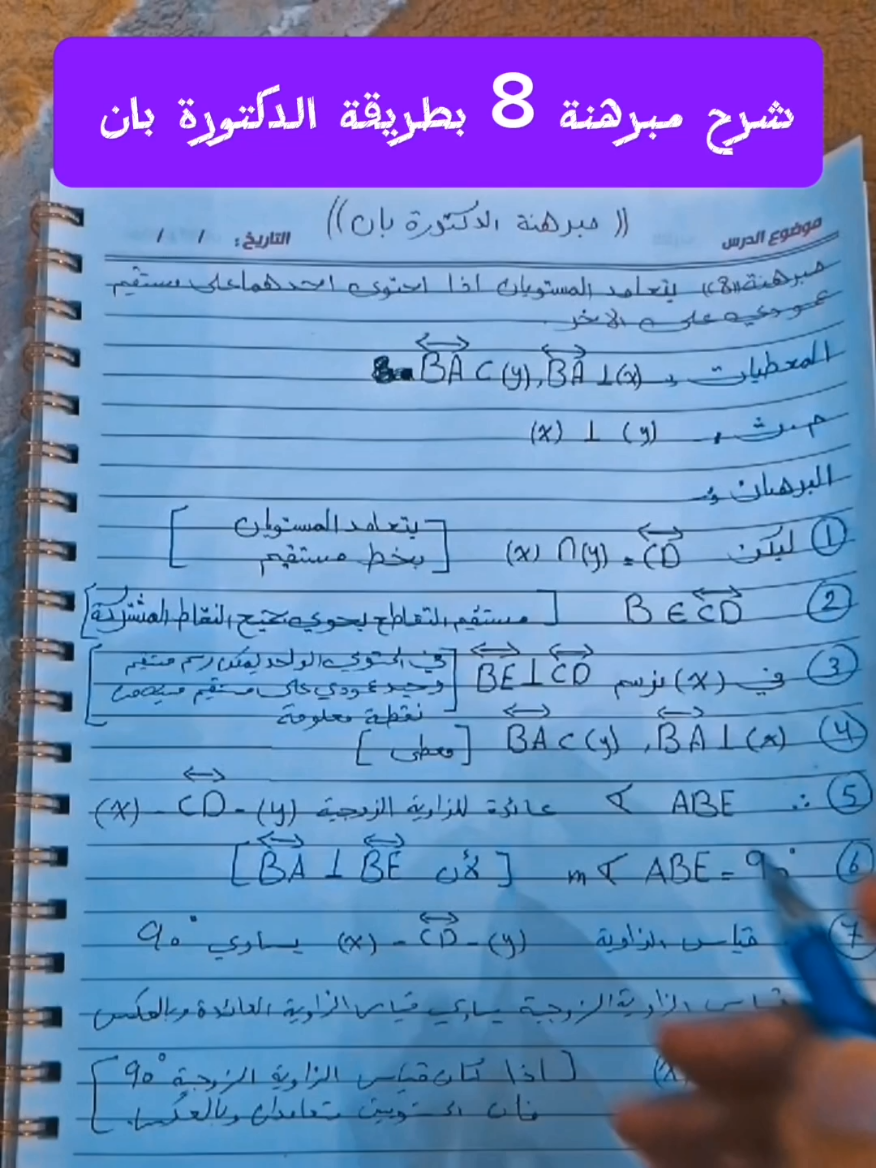 شرح مبرهنة 8 بطريقة الدكتورة بان
موضوع الدرس
(( مبرهنة الدكتورة بان ))
التاريخ: / /
مبرهنة ((8)) يتعامد المستويان اذا احتوى احدهما على مستقيم
عمودي على الاخر
المعطيات: BA ⊂ (y), BA ⊥ (x)
م.ث: (x) ⊥ (y)
البرهان:
① ليكن (x) ∩ (y) = CD [يتعامد المستويان
بخط مستقيم]
② B ∈ CD [مستقيم التقاطع يحوي جميع النقاط المشتركة]
③ في (x) نرسم BE ⊥ CD [في المستوي الواحد يمكن رسم مستقيم
وحيد عمودي على مستقيم فيه من
نقطة معلومة]
④ BA ⊂ (y), BA ⊥ (x) [معطى]
⑤ ∴ ∢ ABE عائدة للزاوية الزوجية (x) - CD - (y)
⑥ m ∢ ABE = 90° [لأن BA ⊥ BE]
⑦ قياس الزاوية (y) - CD - (x) يساوي 90°
قياس الزاوية الزوجية يساوي قياس الزاوية العائدة وبالعكس
(x) [اذا كان قياس الزاوية الزوجية 90°
فان المستويين متعامدان وبالعكس]